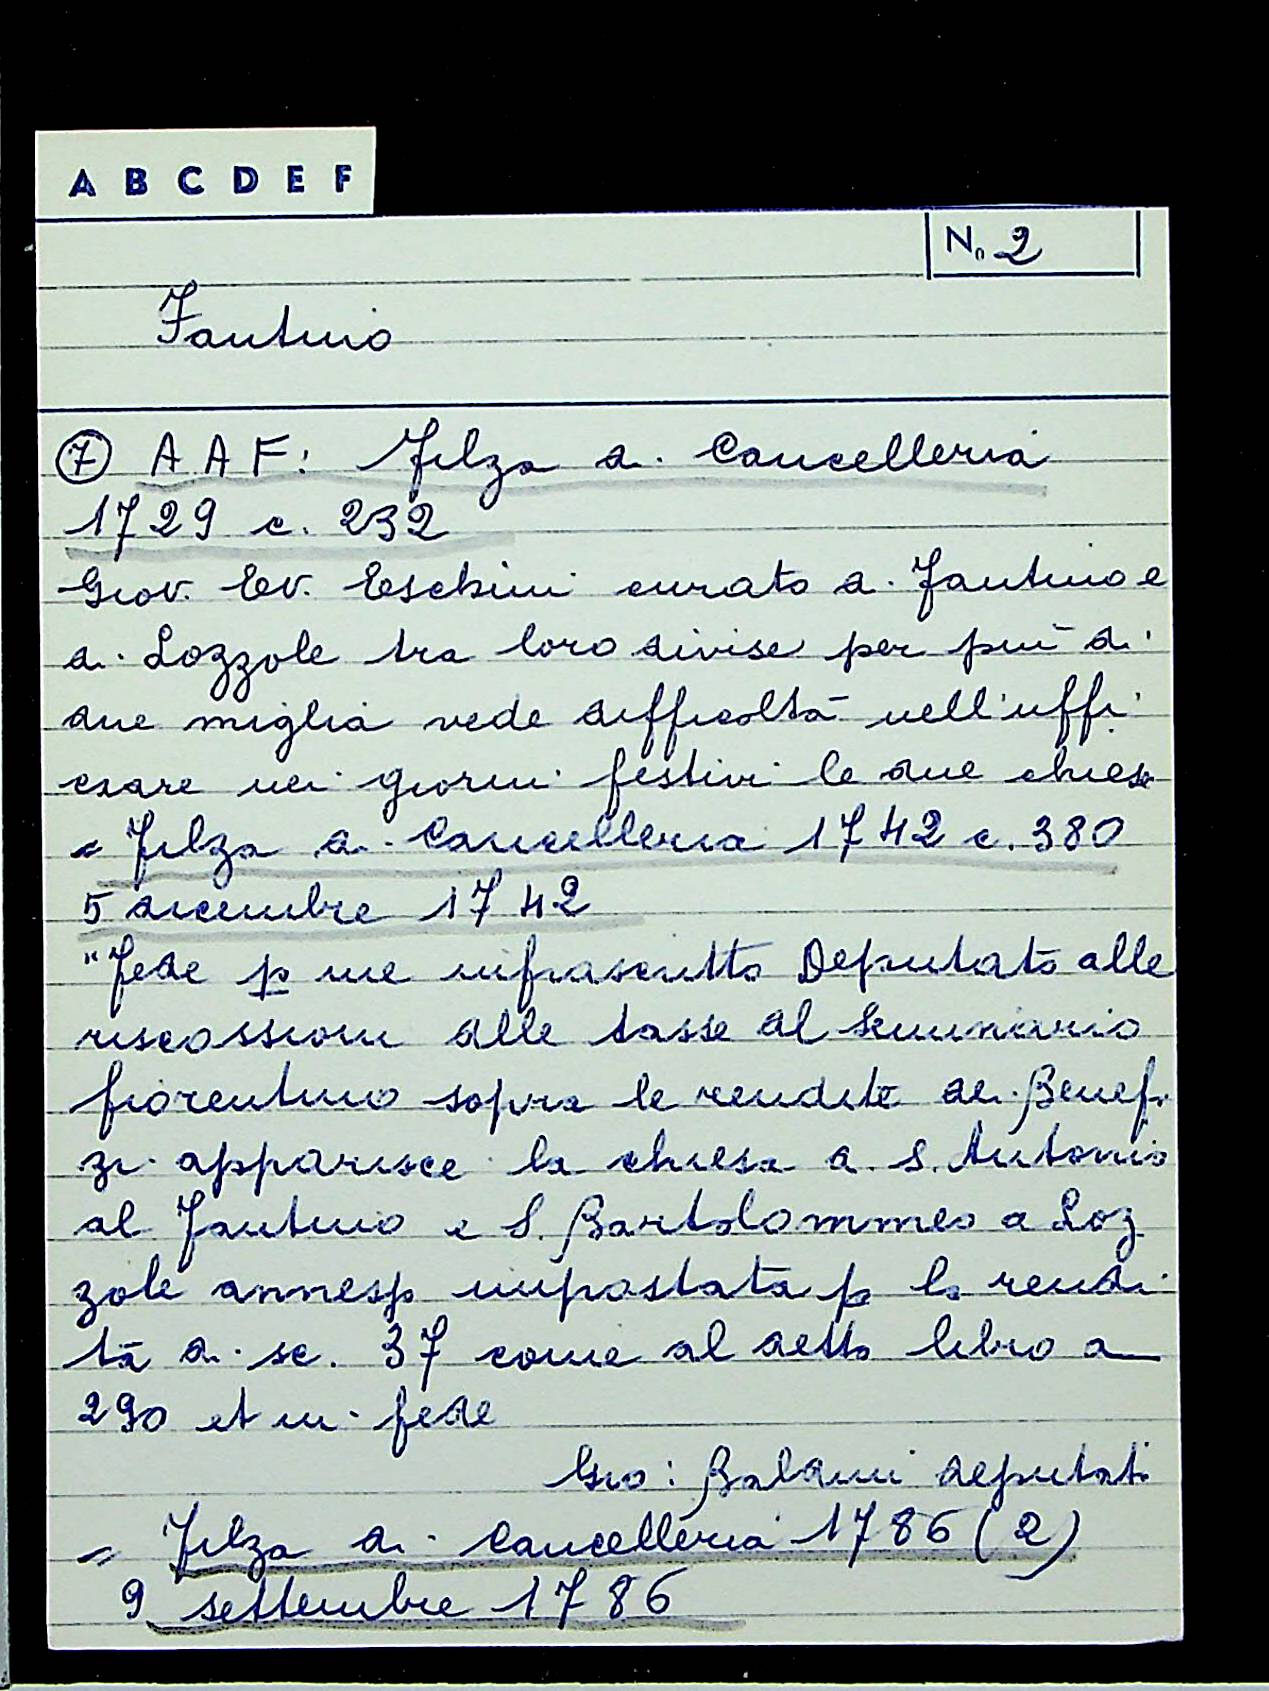 A B C D E F
N. 2
Fantino
⑦ A A F: Filza di Cancelleria
1729 c. 232
Giov. Ev. Eschini curato di Fantino e
di Lozzole tra loro divise per più di
due miglia vede difficoltà nell'uffi
ciare nei giorni festivi le due chiese
= Filza di Cancelleria 1742 c. 380
5 dicembre 1742
"Fede p me infrascritto Deputato alle
riscossioni delle tasse del Seminario
fiorentino sopra le rendite dei Benefi
zi apparisce la chiesa di S. Antonio
al Fantino e S. Bartolommeo a Loz
zole annessa impostata p la rendi
ta di sc. 37 come al detto libro a
290 et in fede
Gio: Baldini deputati
= Filza di Cancelleria 1786 (2)
9 settembre 1786